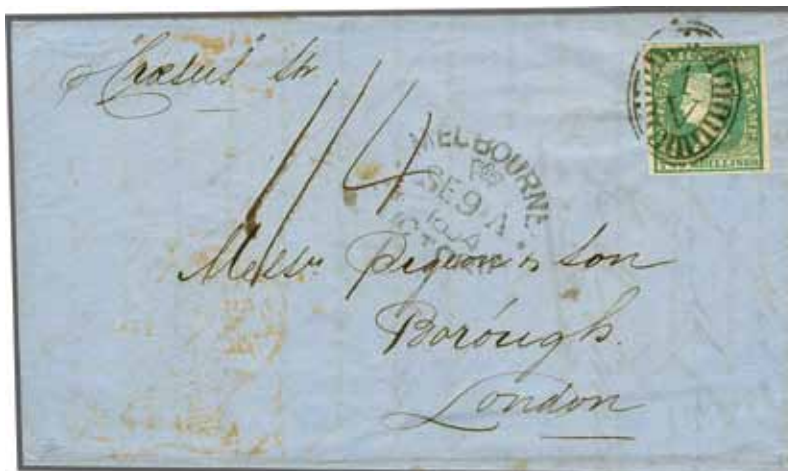 "Croesus" Str
1/4
MELBOURNE
SE 9 A
1854
VICTORIA
Messrs Pigeon & Son
Borough.
London